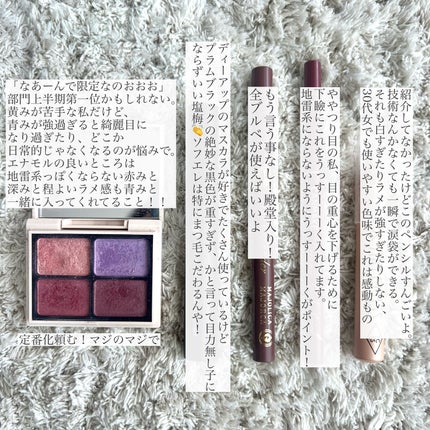 「なあーんで限定なのおおお」
部門上半期第一位かもしれない。
黄みが苦手な私だけど、
青みが強過ぎると綺麗目に
なり過ぎたり、どこか
日常的じゃなくなるのが悩みで。
エナモルの良いところは
地雷系っぽくならない赤みと
深みと程よいラメ感も青みと
一緒に入ってくれてること！！
定番化頼む！マジのマジで
ディーアップのマスカラが好きでたくさん使っているけど
プラムブラックの絶妙な黒色が重すぎず、かと言って目力無し子に
ならずいい塩梅👏ソフエレは特にまつ毛こだわるんや！
もう言う事なし！殿堂入り！
全ブルベが使えばいいよ
MAJOLICA
MAJORCA
ややつり目の私、目の重心を下げるために
下瞼にこれをうっすーーーく入れてます。
地雷系にならないようにうっすーーーくがポイント！
紹介してなかったけどこのペンシルすんごいよ。
技術なんかなくても一瞬で涙袋ができる。
それも白すぎたりラメが強すぎたりしない、
30代女でも使いやすい色味でこれは感動もの